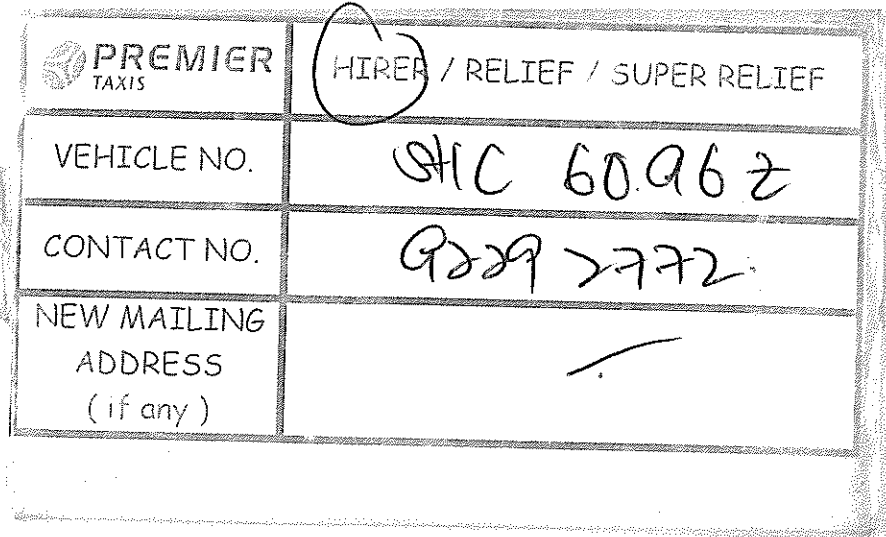 PREMIER
TAXIS
HIRER / RELIEF / SUPER RELIEF
VEHICLE NO.
SHC 6096Z
CONTACT NO.
9229 2772
NEW MAILING
ADDRESS
( if any )